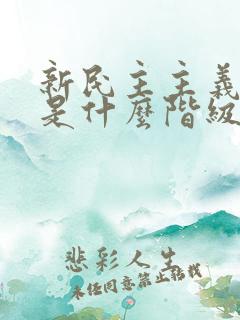 新民主主義
是什麼階級
悲彩人生
未经同意禁止转载